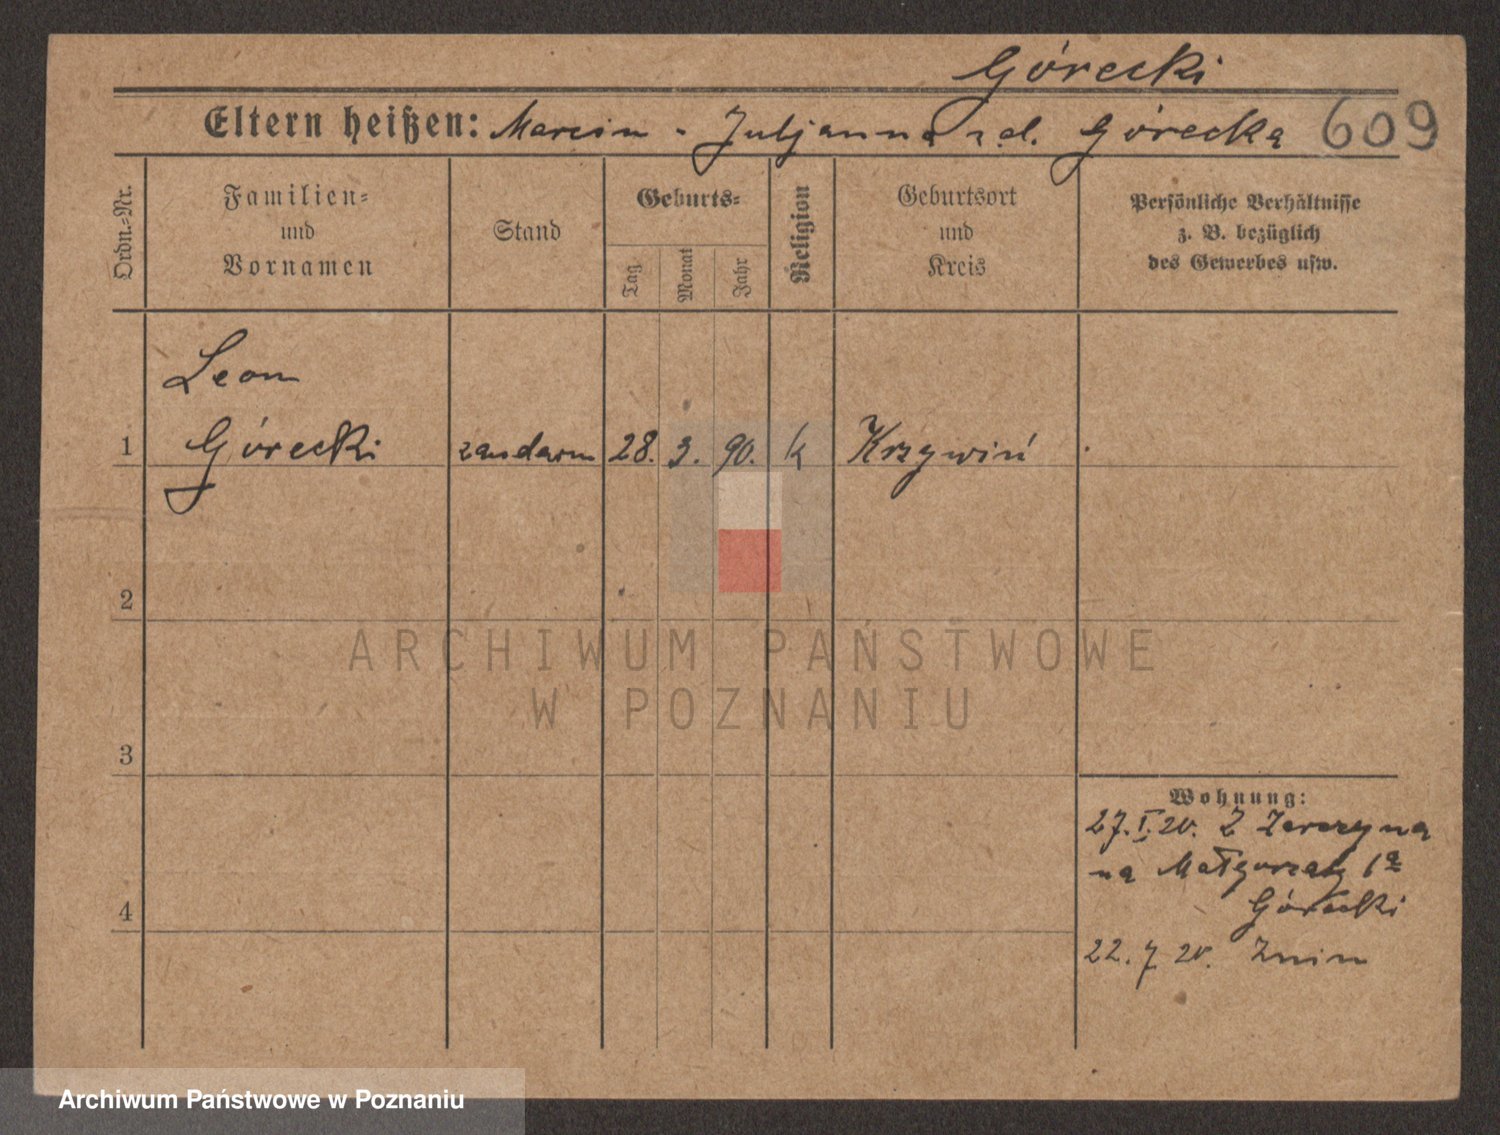 Górecki
Eltern heißen: Marcin - Juljanna z d. Górecka 609
Ordn.-Nr.
Familien-
und
Vornamen
Stand
Geburts-
Tag
Monat
Jahr
Religion
Geburtsort
und
Kreis
Persönliche Verhältnisse
z. B. bezüglich
des Gewerbes usw.
Leon
1 Górecki żandarm 28. 3. 90. k Krzywiń
2
3
4
Wohnung:
27. I. 20. Z
na Małgorzaty 1a
Górecki
22. 7. 20. Żnin
ARCHIWUM PAŃSTWOWE
W POZNANIU
Archiwum Państwowe w Poznaniu